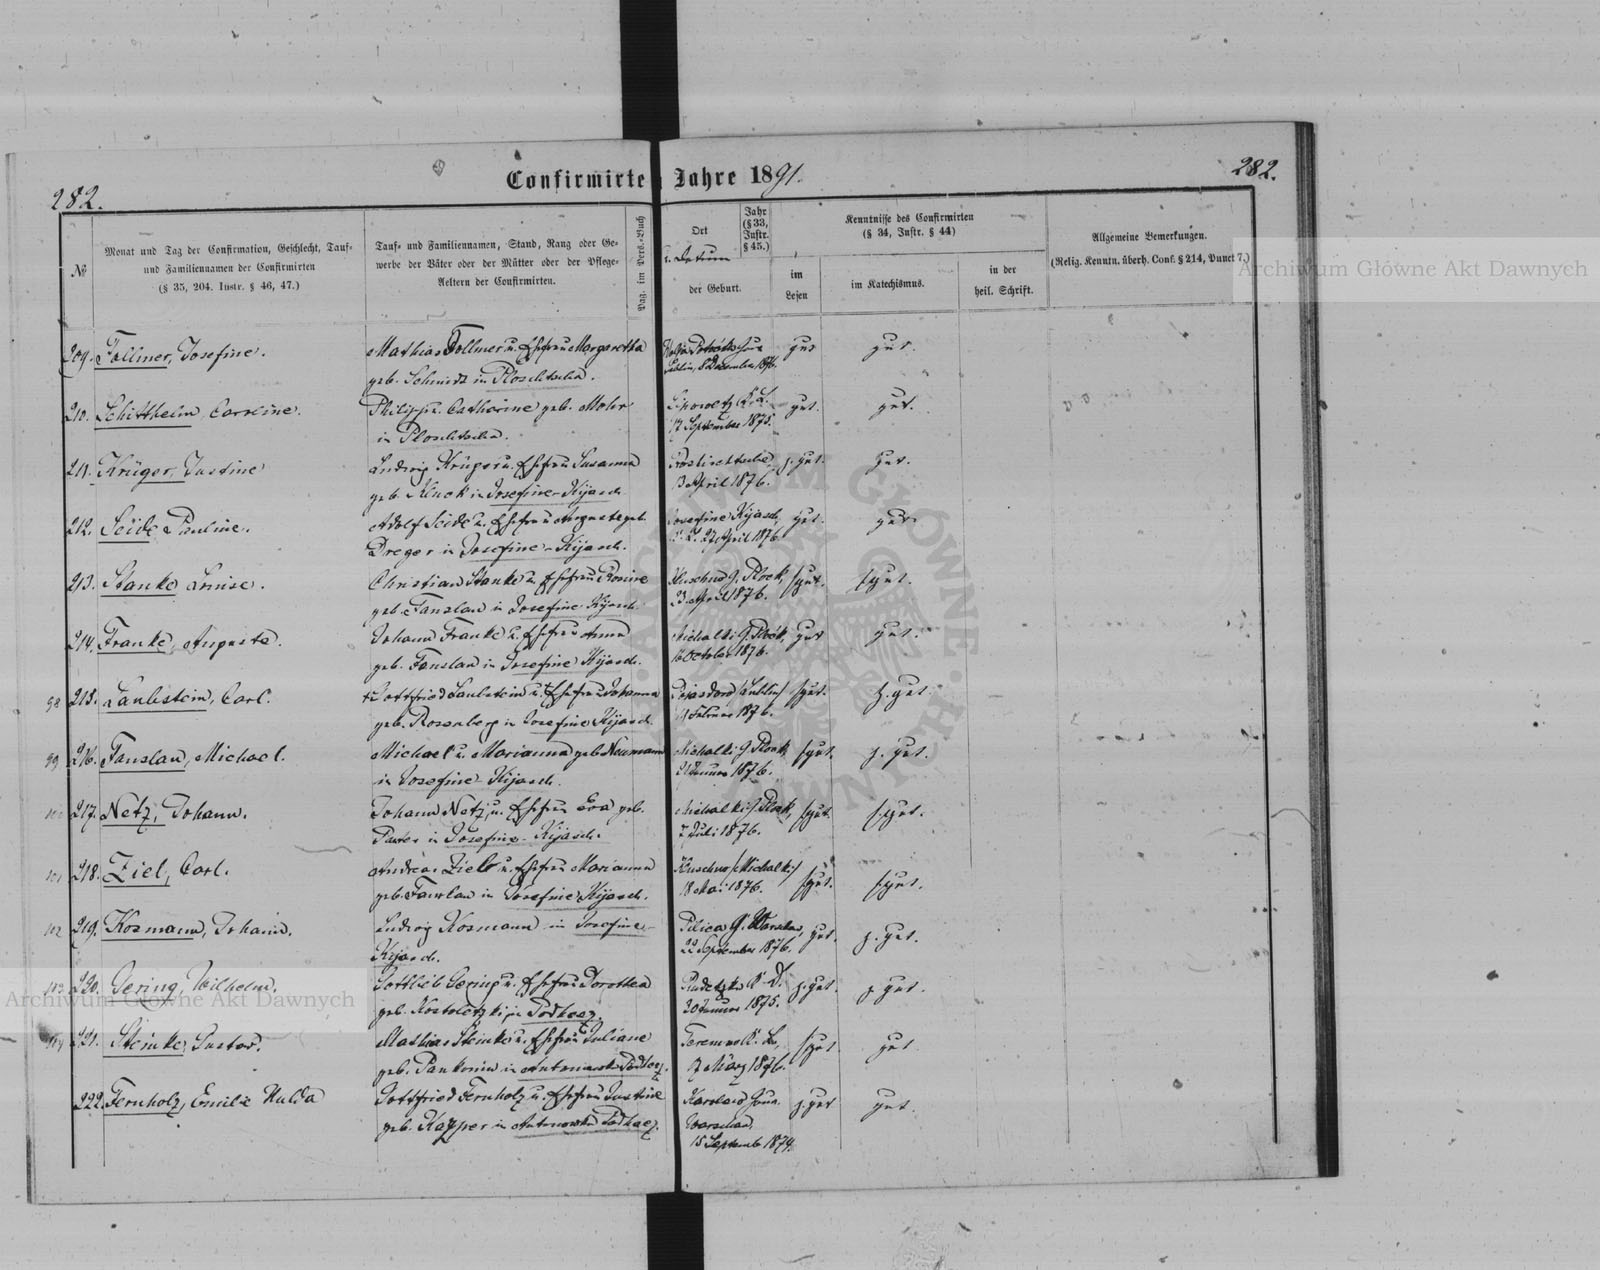 282.
Confirmirte
Jahre 1891.
282.
№
Monat und Tag der Confirmation, Geschlecht, Tauf-
und Familiennamen der Confirmirten
(§ 35, 204. Instr. § 46, 47.)
Tauf- und Familiennamen, Stand, Rang oder Ge-
werbe der Väter oder der Mütter oder der Pflege-
Aeltern der Confirmirten.
Pag. im Pers.-Buch
Ort
u. Datum
der Geburt.
Jahr
(§ 33,
Instr.
§ 45.)
Kenntnisse des Confirmirten
(§ 34, Instr. § 44)
im
Lesen
im Katechismus.
in der
heil. Schrift.
Allgemeine Bemerkungen.
(Relig. Kenntn. überh. Conf. § 214, Punct 7.)
Archiwum Główne Akt Dawnych
209. Follmer, Josefine.
Mathias Follmer u. Ehefrau Margaretha
geb. Schmidt in Ploschtscha.
gut
gut.
210. Schitthelm, Caroline.
Philipp u. Catharine geb. Mohr
in Ploschtscha.
17 September 1875.
gut.
gut.
211. Krüger, Justine
Ludwig Krüger u. Ehefrau Susanna
geb. Kluck in Josefine-Kijasch.
13 April 1876.
z. gut.
gut.
212. Seide Pauline.
Adolf Seide u. Ehefrau Auguste geb.
Dreger in Josefine-Kijasch.
Josefine Kijasch,
27 April 1876.
gut.
gut.
213. Stanke Louise.
Christian Stanke u. Ehefrau Rosine
geb. Fanslau in Josefine-Kijasch.
G. Plock,
23 April 1876.
s. gut.
s. gut.
214. Franke, Auguste.
Johann Franke u. Ehefrau Anna
geb. Fanslau in Josefine Kijasch.
Michalki G. Plock,
16 October 1876.
gut
gut.
98 215. Laubstein, Carl.
Gottfried Laubstein u. Ehefrau Johanna
geb. Rosenberg in Josefine Kijasch.
Februar 1876.
s. gut.
z. gut.
99 216. Fanslau, Michael.
Michael u. Marianna geb. Neumann
in Josefine-Kijasch.
Michalki G. Plock,
21 Januar 1876.
s. gut.
z. gut.
100 217. Netz, Johann.
Johann Netz, u. Ehefrau Eva geb.
in Josefine-Kijasch.
Michalki G. Plock,
7 Juli 1876.
s. gut.
s. gut.
101 218. Ziel, Carl.
Andreas Ziel u. Ehefrau Marianna
geb. Fanslau in Josefine Kijasch.
18 Mai 1876.
s. gut.
s. gut.
102 219. Kosmann, Johann.
Ludwig Kosmann in Josefine-
Kijasch.
Pilica G. Warschau,
22 September 1876.
gut.
z. gut.
103 220. Gering, Wilhelm.
Gottlieb Gering u. Ehefrau Dorothea
geb. in Podlaez.
20 Januar 1875.
z. gut.
z. gut.
Archiwum Główne Akt Dawnych
104 221. Steinke, Gustav.
Mathias Steinke u. Ehefrau Juliane
geb. Pankonin in Antonowka Podlaez.
17 März 1876.
s. gut
gut
222. Fernholz, Emilie Hulda
Gottfried Fernholz u. Ehefrau Justine
geb. Kapper in Antonowka Podlaez.
Warschau,
15 Septemb 1874.
z. gut
gut.